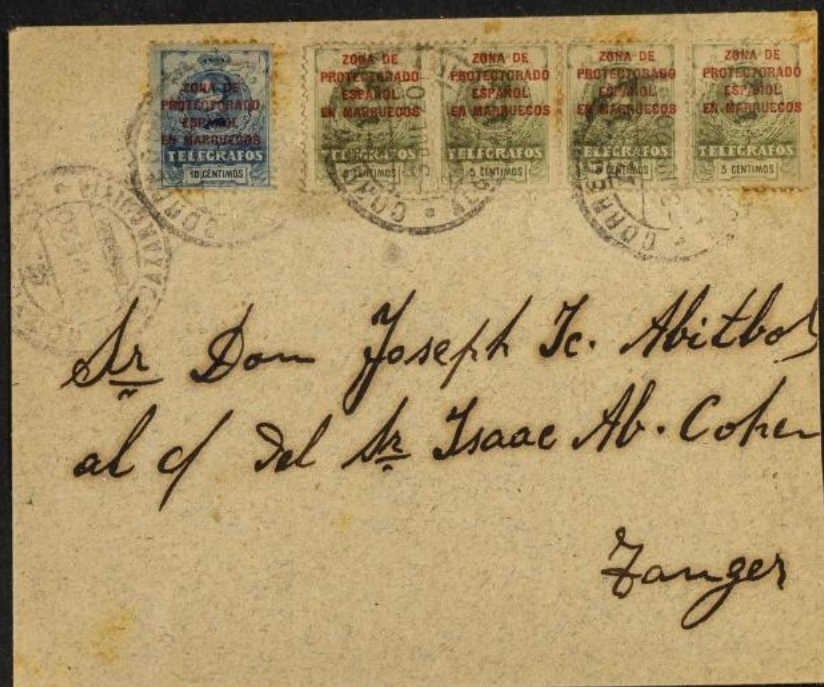 ZONA DE
PROTECTORADO
ESPAÑOL
EN MARRUECOS
TELEGRAFOS
10 CENTIMOS
ZONA DE
PROTECTORADO
ESPAÑOL
EN MARRUECOS
TELEGRAFOS
5 CENTIMOS
ZONA DE
PROTECTORADO
ESPAÑOL
EN MARRUECOS
TELEGRAFOS
5 CENTIMOS
ZONA DE
PROTECTORADO
ESPAÑOL
EN MARRUECOS
TELEGRAFOS
5 CENTIMOS
ZONA DE
PROTECTORADO
ESPAÑOL
EN MARRUECOS
TELEGRAFOS
5 CENTIMOS
Sr Don Joseph Ic. Abitbol
al c/ del Sr Isaac Ab. Cohen
Tanger